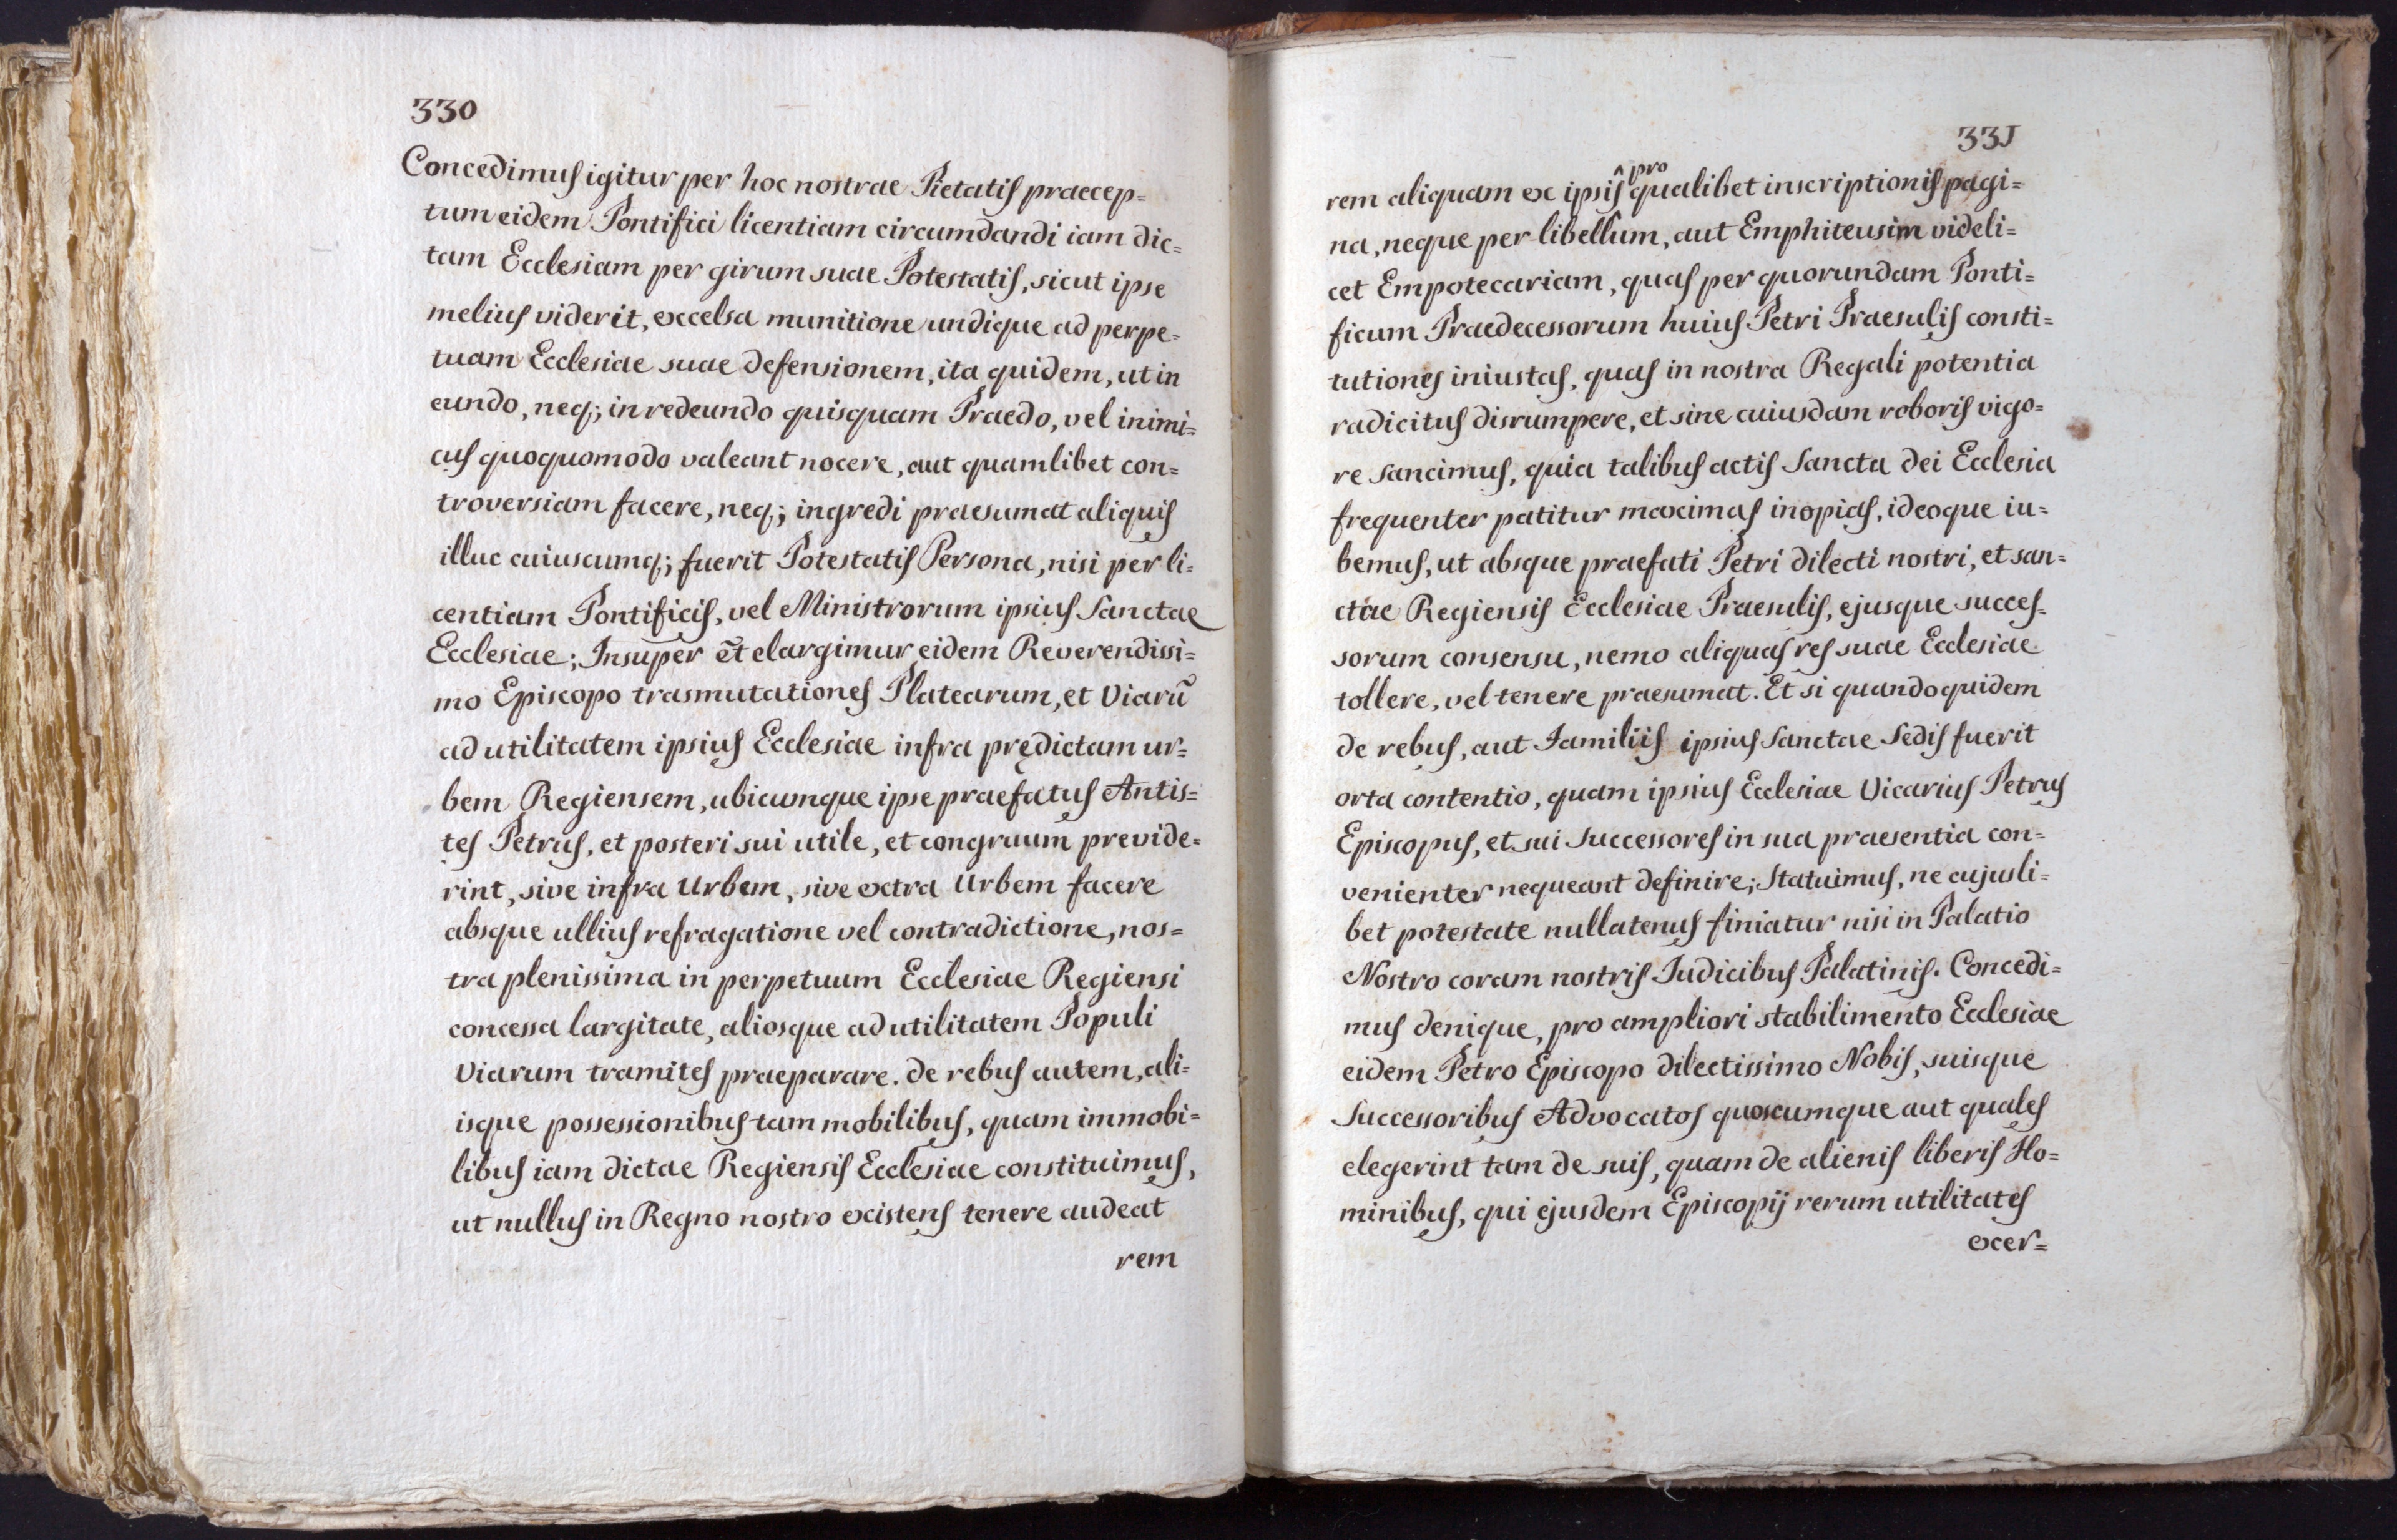 330
Concedimus igitur per hoc nostrae Pietatis praecep=
tum eidem Pontifici licentiam circumdandi iam dic=
tam Ecclesiam per girum suae Potestatis, sicut ipse
melius viderit, excelsa munitione undique ad perpe=
tuam Ecclesiae suae defensionem, ita quidem, ut in
eundo, neq; in redeundo quisquam Praedo, vel inimi=
cus quoquomodo valeant nocere, aut quamlibet con=
troversiam facere, neq; ingredi praesumat aliquis
illuc cuiuscumq; fuerit Potestatis Persona, nisi per li=
centiam Pontificis, vel Ministrorum ipsius Sanctae
Ecclesiae; Insuper et̃ elargimur eidem Reverendissi=
mo Episcopo trasmutationes Platearum, et Viarũ
ad utilitatem ipsius Ecclesiae infra prędictam ur=
bem Regiensem, ubicumque ipse praefatus Antis=
tes Petrus, et posteri sui utile, et congruum previde=
rint, sive infra Urbem, sive extra Urbem facere
absque ullius refragatione vel contradictione, nos=
tra plenissima in perpetuum Ecclesiae Regiensi
concessa largitate, aliosque ad utilitatem Populi
Viarum tramites praeparare. De rebus autem, ali=
isque possessionibus tam mobilibus, quam immobi=
libus iam dictae Regiensis Ecclesiae constituimus,
ut nullus in Regno nostro existens tenere audeat
rem
331
rem aliquam ex ipsis ^pro qualibet inscriptionis pagi=
na, neque per libellum, aut Emphiteusim videli=
cet Empotecariam, quas per quorundam Ponti=
ficum Praedecessorum huius Petri Praesulis consti=
tutiones iniustas, quas in nostra Regali potentia
radicitus disrumpere, et sine cuiusdam roboris vigo=
re sancimus, quia talibus actis Sancta Dei Ecclesia
frequenter patitur maximas inopias, ideoque iu=
bemus, ut absque praefati Petri dilecti nostri, et san=
ctae Regiensis Ecclesiae Praesulis, ejusque succes=
sorum consensu, nemo aliquas res suae Ecclesiae
tollere, vel tenere praesumat. Et si quandoquidem
de rebus, aut Familiis ipsius Sanctae Sedis fuerit
orta contentio, quam ipsius Ecclesiae Vicarius Petrus
Episcopus, et sui Successores in sua praesentia con=
venienter nequeant definire; Statuimus, ne cujusli=
bet potestate nullatenus finiatur nisi in Palatio
Nostro coram nostris Judicibus Palatinis. Concedi=
mus denique, pro ampliori stabilimento Ecclesiae
eidem Petro Episcopo dilectissimo Nobis, suisque
Successoribus Advocatos quoscumque aut quales
elegerint tam de suis, quam de alienis liberis Ho=
minibus, qui ejusdem Episcopij rerum utilitates
exer=